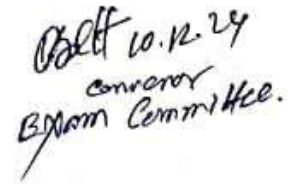 10.12.24
convenor
Exam Committee.